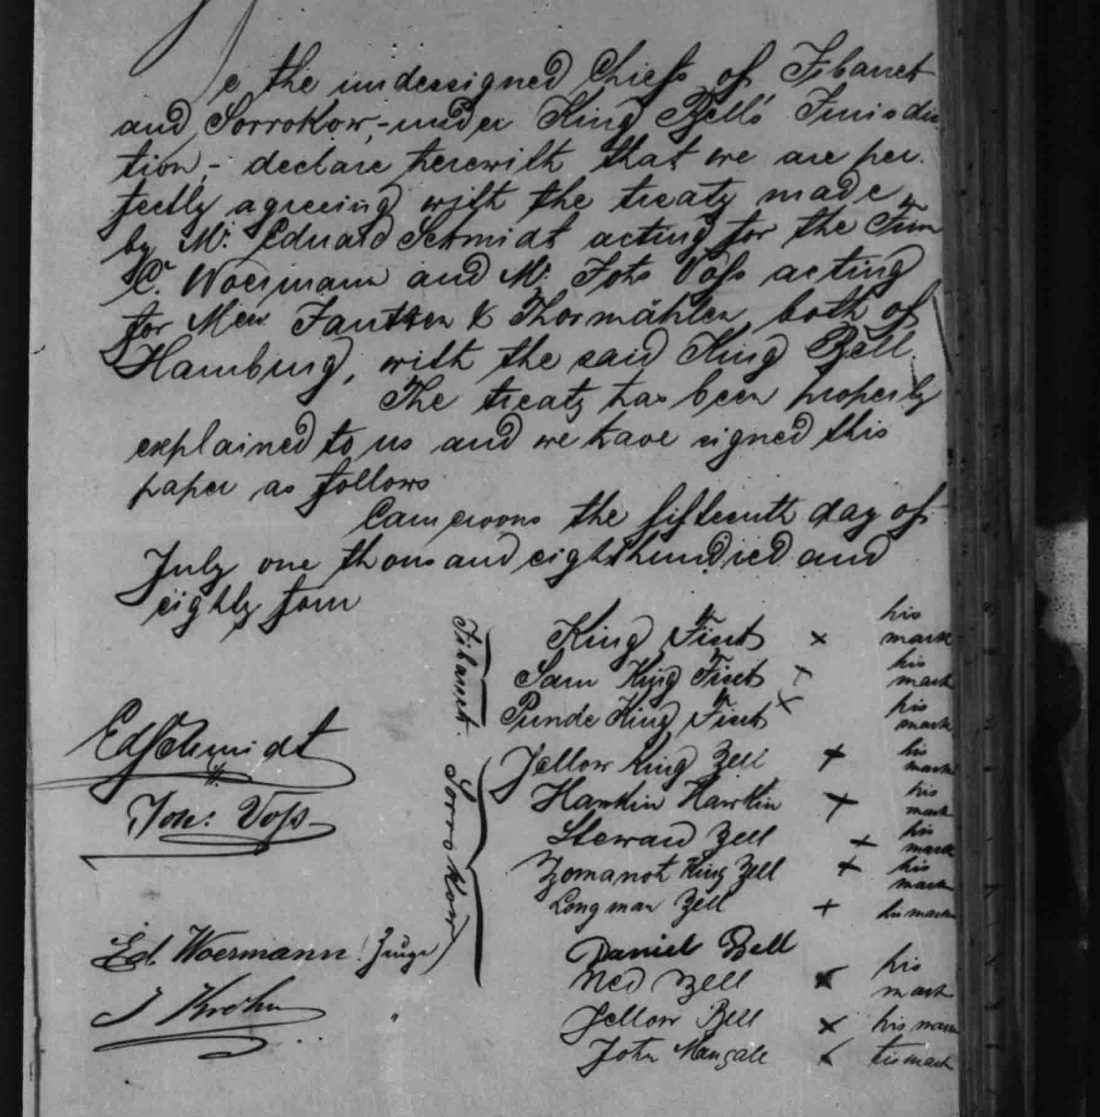 e the undersigned Chiefs of Fibanet
and Sorrokow,-under King Bell's Jurisdic
tion,- declare herewith that we are per-
fectly agreeing with the treaty made
by Mr. Eduard Schmidt acting for the Firm
C. Woermann and Mr. Johs Voss acting
for Jantzen & Thormählen both of
Hamburg, with the said King Bell.
The treaty has been properly
explained to us and we have signed this
paper as follows
Cameroons the fifteenth day of
July one thousand eighthundred and
eighty four
King × his mark
Sam King × his mark
King × his mark
Jellow King Bell + his mark
+ his mark
Steward Bell + his mark
King Bell + his mark
Long man Bell + his mark
Daniel Bell
Ned Bell × his mark
Jellow Bell × his mark
John × his mark
Sorrokow
EdSchmidt
Joh: Voss
Ed. Woermann (Zeuge)
J Krohn "